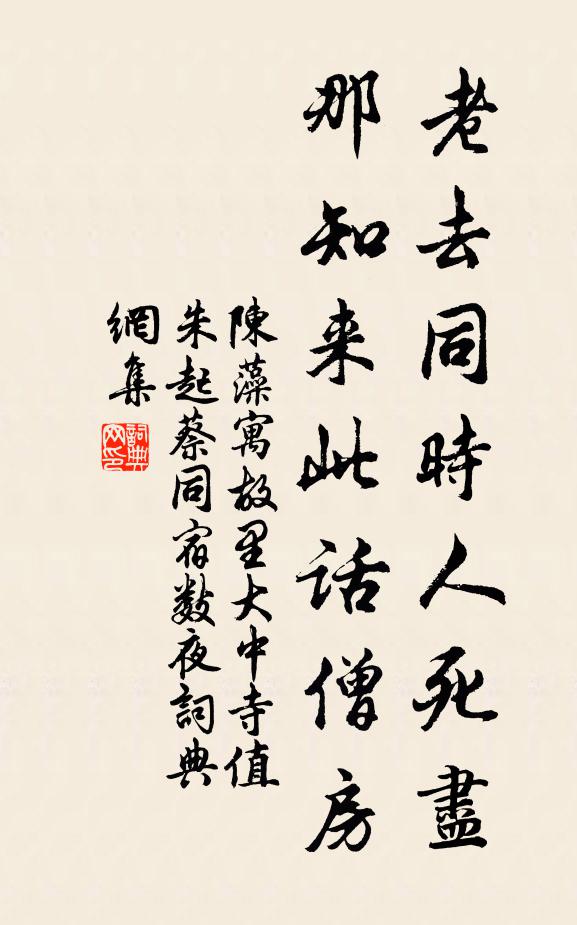 老去同時人死盡
那知来此話僧房
陳藻寓故里大中寺值
朱起蔡同宿數夜詞典
網集
詞典網印